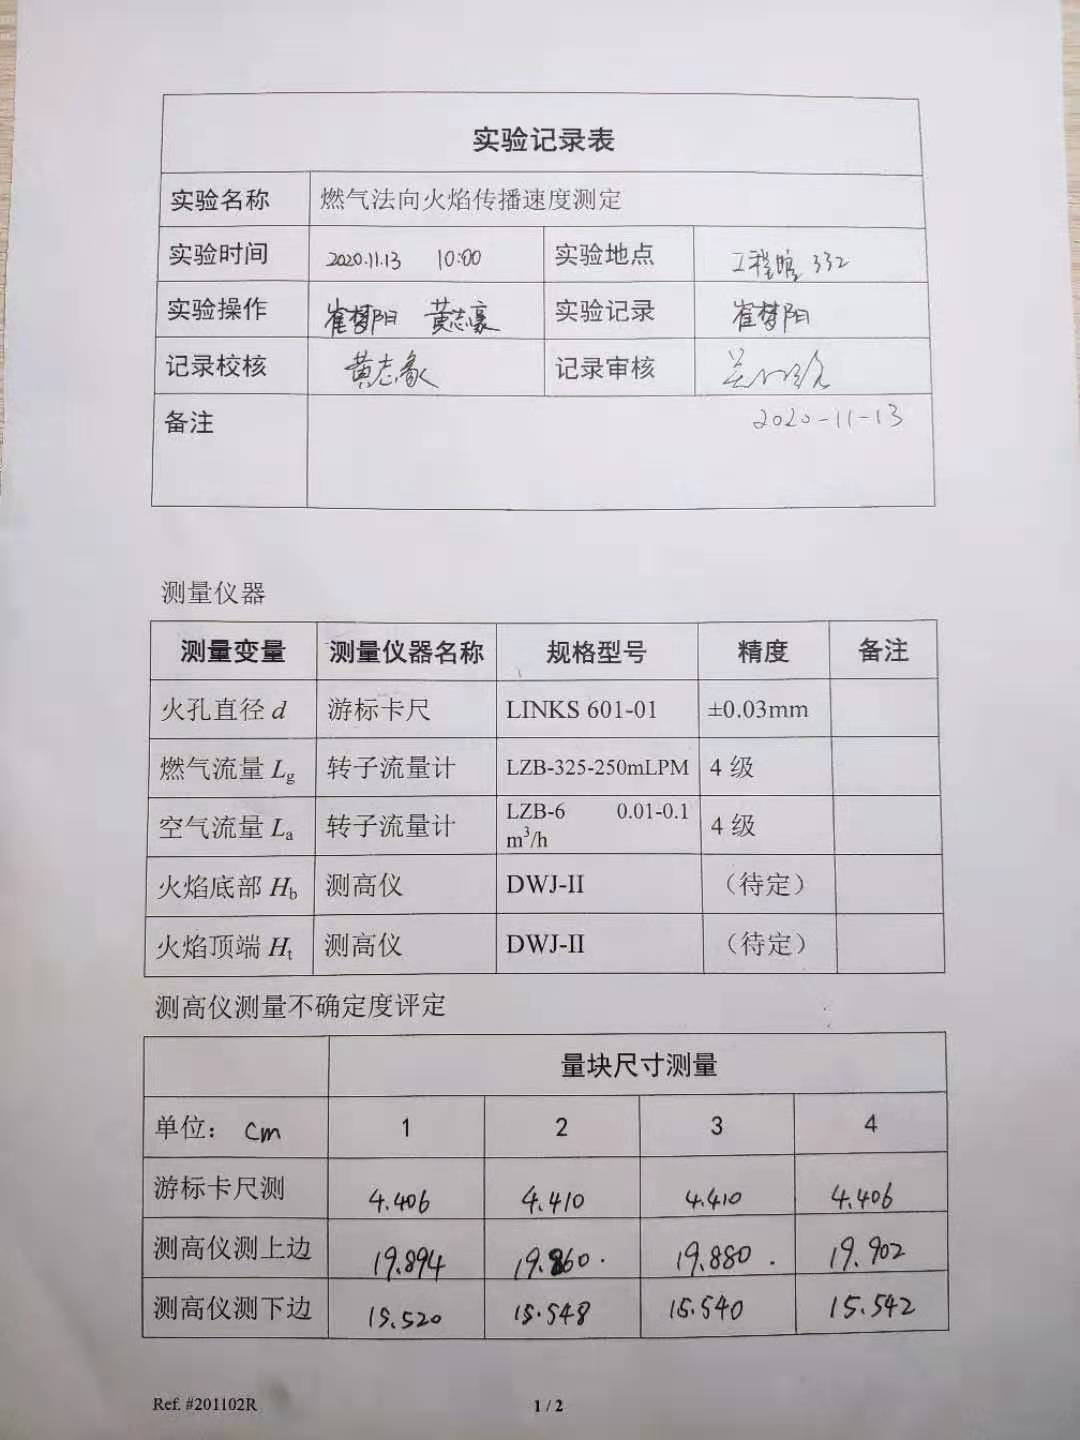 实验记录表
实验名称 燃气法向火焰传播速度测定
实验时间 2020.11.13 10:00 实验地点 工程馆 332
实验操作 崔梦阳 黄志豪 实验记录 崔梦阳
记录校核 黄志豪 记录审核
备注 2020-11-13
测量仪器
测量变量 测量仪器名称 规格型号 精度 备注
火孔直径 d 游标卡尺 LINKS 601-01 ±0.03mm
燃气流量 Lg 转子流量计 LZB-325-250mLPM 4 级
空气流量 La 转子流量计 LZB-6 0.01-0.1 m³/h 4 级
火焰底部 Hb 测高仪 DWJ-II （待定）
火焰顶端 Ht 测高仪 DWJ-II （待定）
测高仪测量不确定度评定
量块尺寸测量
单位： cm 1 2 3 4
游标卡尺测 4.406 4.410 4.410 4.406
测高仪测上边 19.894 19.860 19.880 19.902
测高仪测下边 15.520 15.548 15.540 15.542
Ref. #201102R 1 / 2